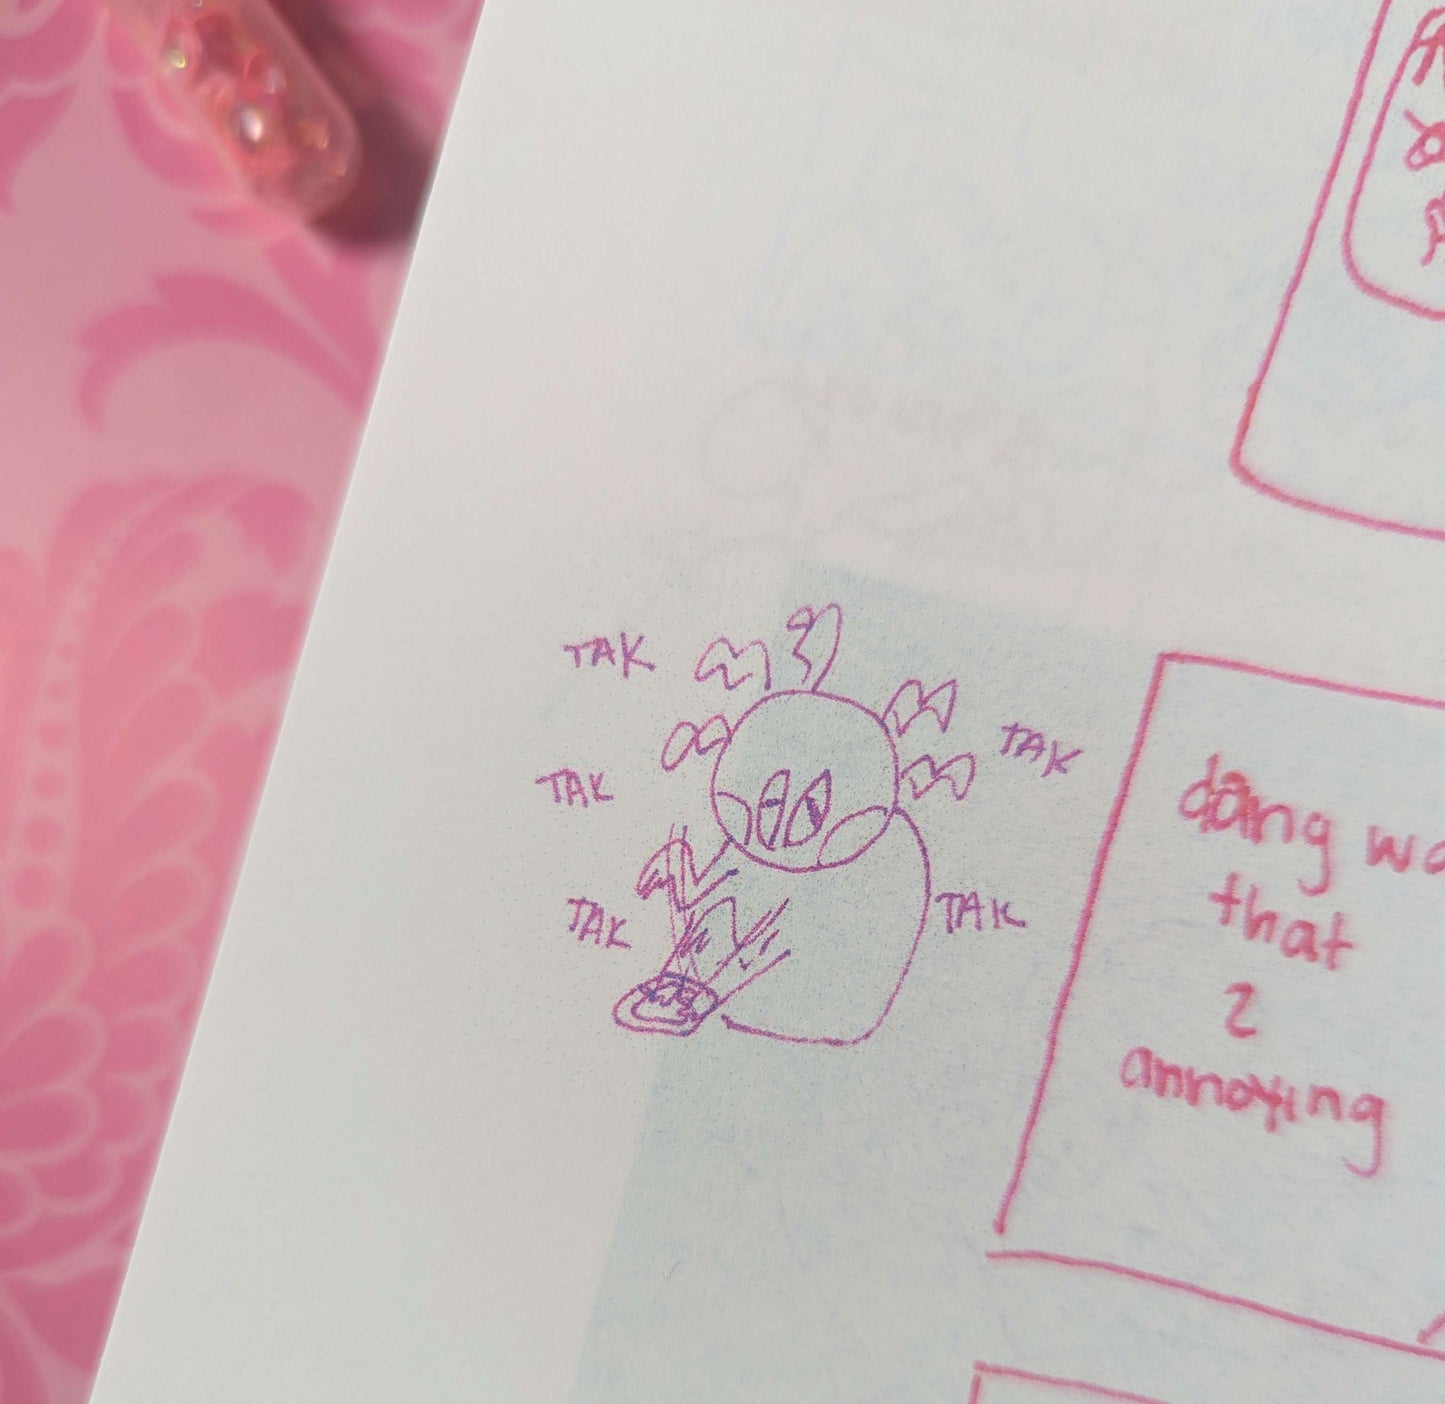 TAK
TAK
TAK
TAK
TAK
dang
that
2
annoying